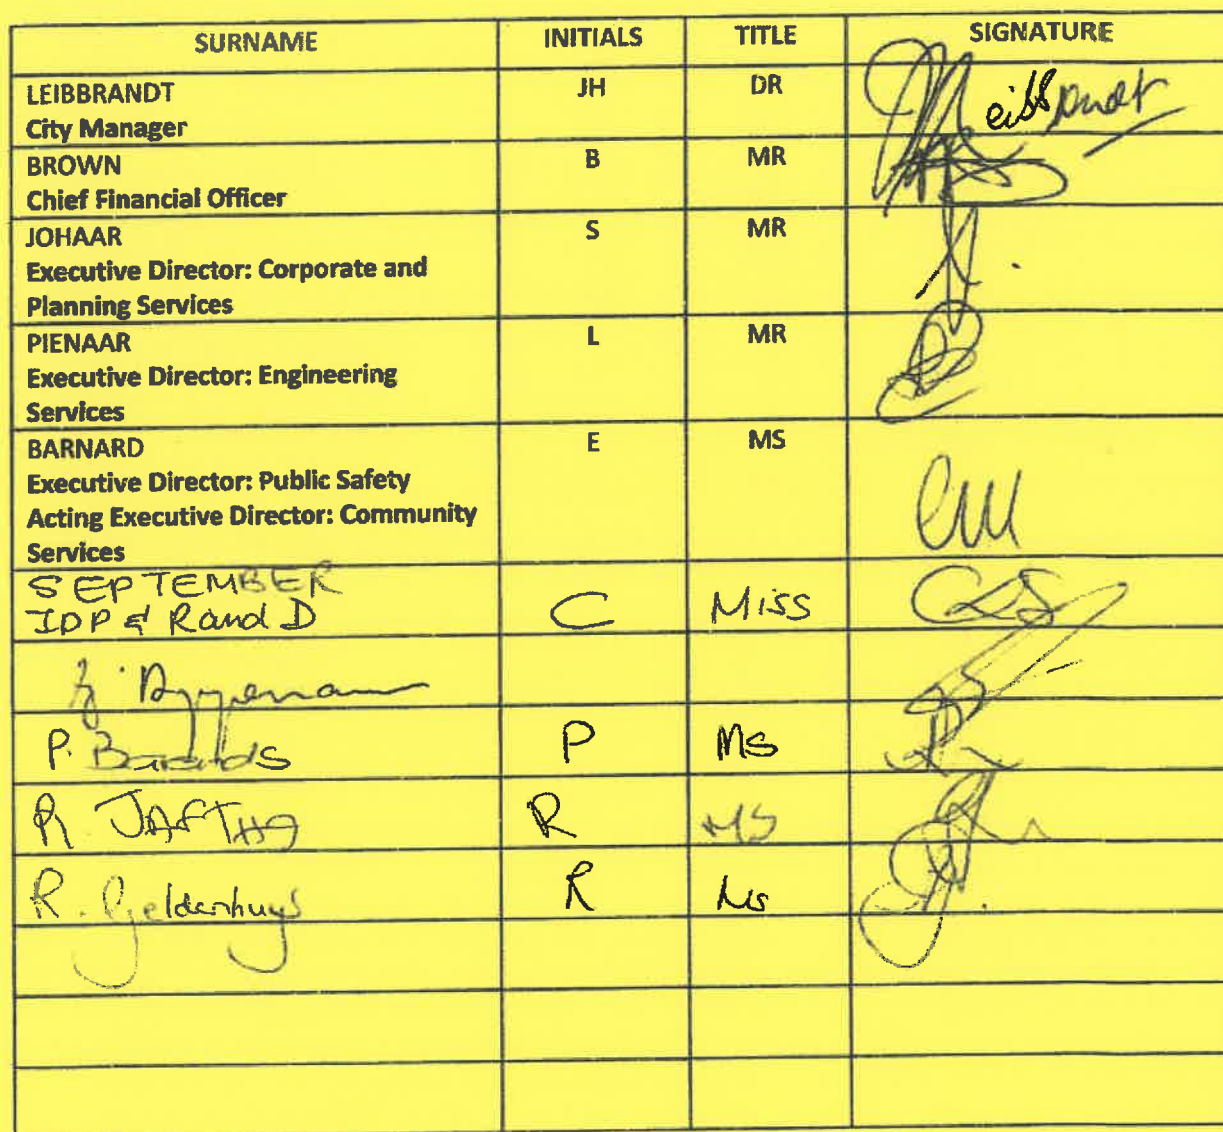 SURNAME INITIALS TITLE SIGNATURE
LEIBBRANDT JH DR
City Manager
BROWN B MR
Chief Financial Officer
JOHAAR S MR
Executive Director: Corporate and
Planning Services
PIENAAR L MR
Executive Director: Engineering
Services
BARNARD E MS
Executive Director: Public Safety
Acting Executive Director: Community
Services
SEPTEMBER
IDP & R and D C Miss
P. P Ms
R. JAFTHA R MS
R. Geldenhuys R Ms